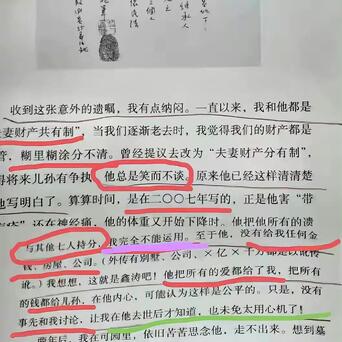 收到这张意外的遗嘱,我有点纳闷。一直以来,我和他都是
夫妻财产共有制”,当我们逐渐老去时,我觉得我们的财产都是
管,糊里糊涂分不清。曾经提议去改为“夫妻财产分有制”,
得将来儿孙有争执,他总是笑而不谈,原来他已经这样清清楚
他写明白了。算算时间,是在二〇〇七年写的,正是他害“带
还在神经痛,他的体重又开始下降时。他把他所有的遗
与其他七人持分,我完全不能运用。至于他,没有给我任何金
钱、房屋、公司。(外传有别墅、公司、×亿×十
讹。)我想想,这就是鑫涛吧!他把所有的爱都给了我,把所有
的钱都给儿孙,在他内心,可能认为这样是公平的。只是,没有
事先和我讨论,让我在他去世后才知道,也未免太用心机了!
年后,我在可园里,依旧苦苦思念他,走不出来。想到墓